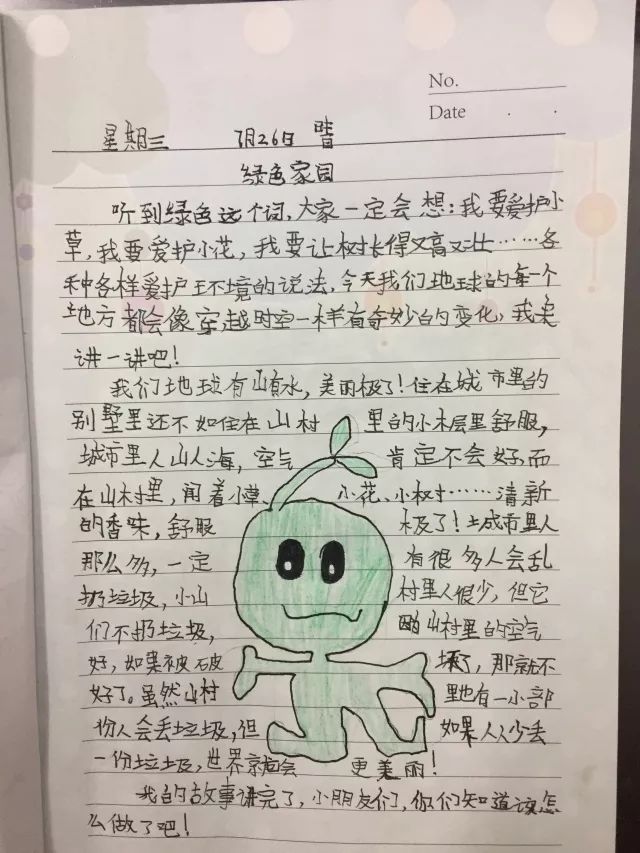 No.
Date
星期三 7月26日 晴
绿色家园
听到绿色这个词，大家一定会想：我要爱护小
草，我要爱护小花，我要让树长得又高又壮……各
种各样爱护环境的说法，今天我们地球的每一个
地方都会像穿越时空一样有奇妙的变化，我来
讲一讲吧！
我们地球有山有水，美丽极了！住在城市里的
别墅里还不如住在山村里的小木层里舒服，
城市里人山人海，空气肯定不会好，而
在山村里，闻着小草、小花、小树……清新
的香味，舒服极了！城市里人
那么多，一定有很多人会乱
扔垃圾，小山村里人很少，但它
们不扔垃圾，山村里的空气
好，如果被破坏了，那就不
好了。虽然山村里也有一小部
份人会丢垃圾，但如果人人少丢
一份垃圾，世界就会更美丽！
我的故事讲完了，小朋友们，你们知道该怎
么做了吧！